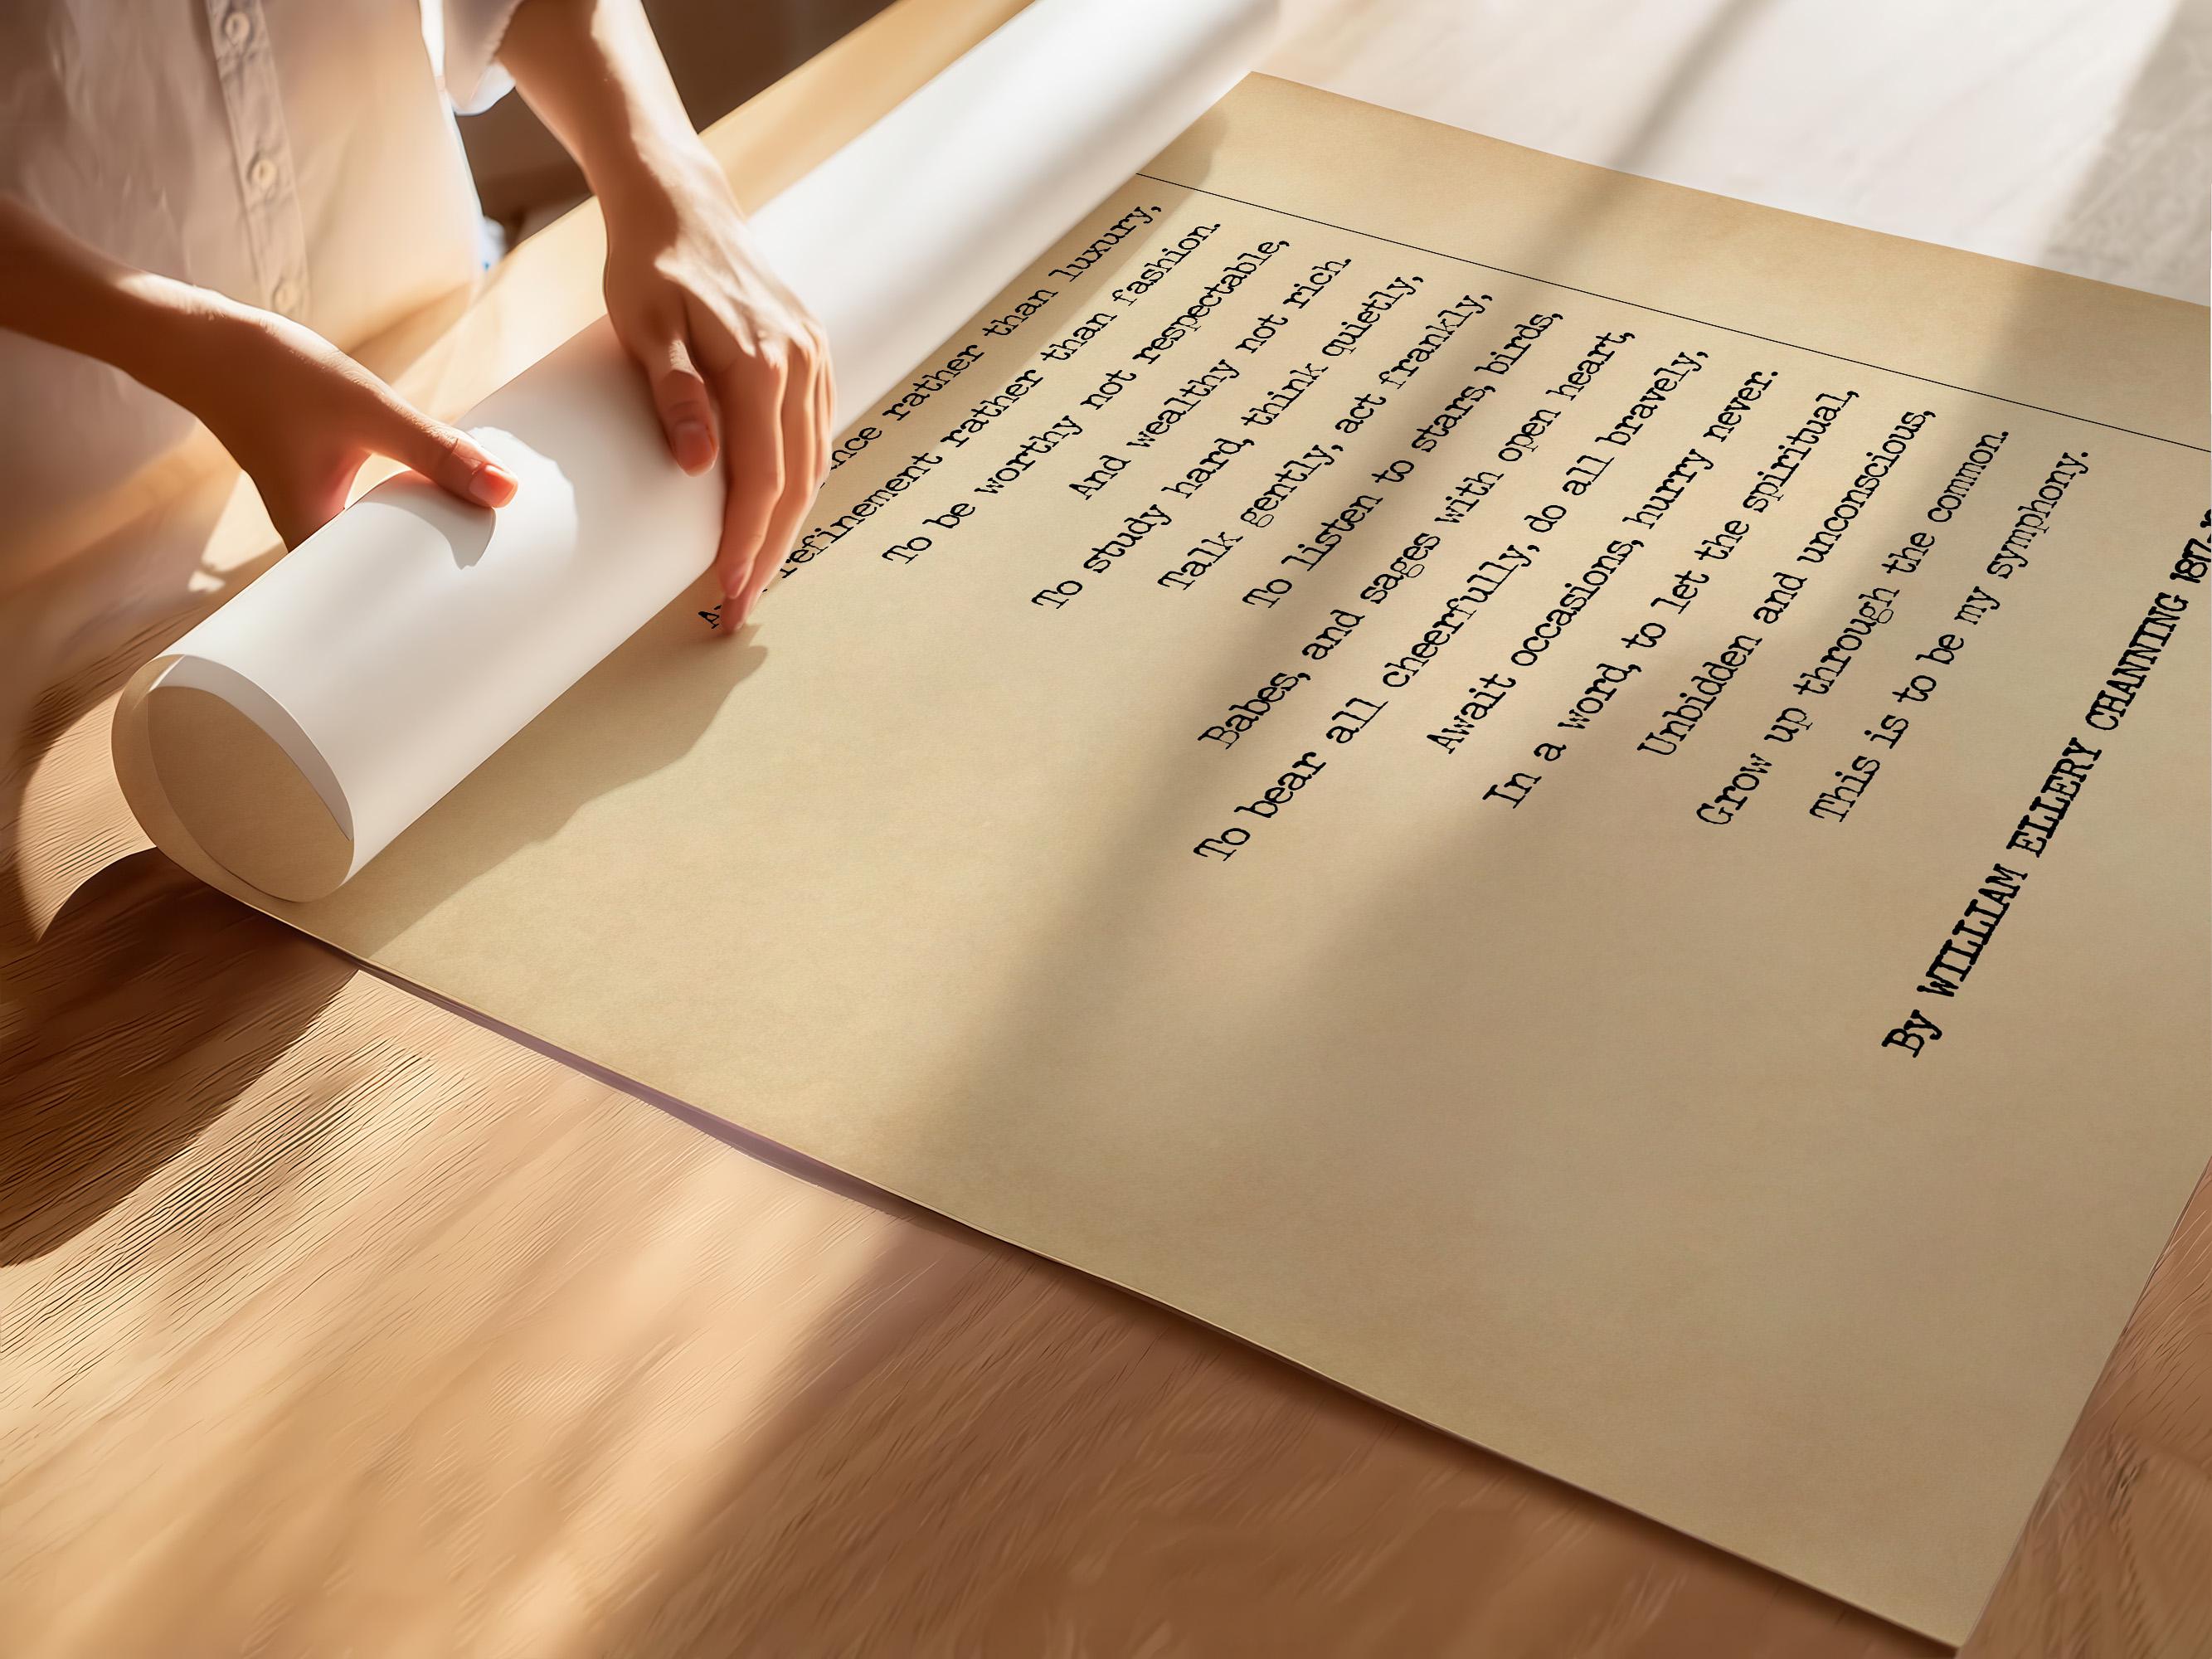 rather than luxury,
refinement rather than fashion.
To be worthy not respectable,
And wealthy not rich.
To study hard, think quietly,
Talk gently, act frankly,
To listen to stars, birds,
Babes, and sages with open heart,
To bear all cheerfully, do all bravely,
Await occasions, hurry never.
In a word, to let the spiritual,
Unbidden and unconscious,
Grow up through the common.
This is to be my symphony.
By WILLIAM ELLERY CHANNING